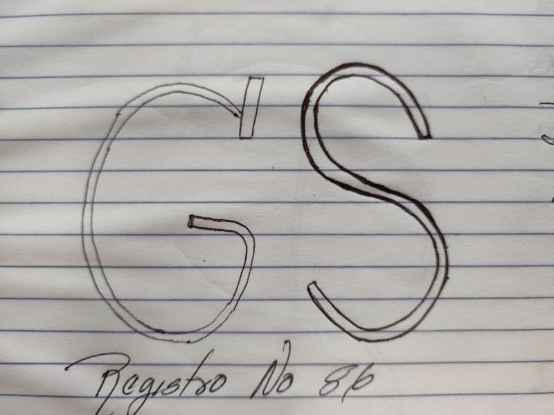 GS
Registro No 86